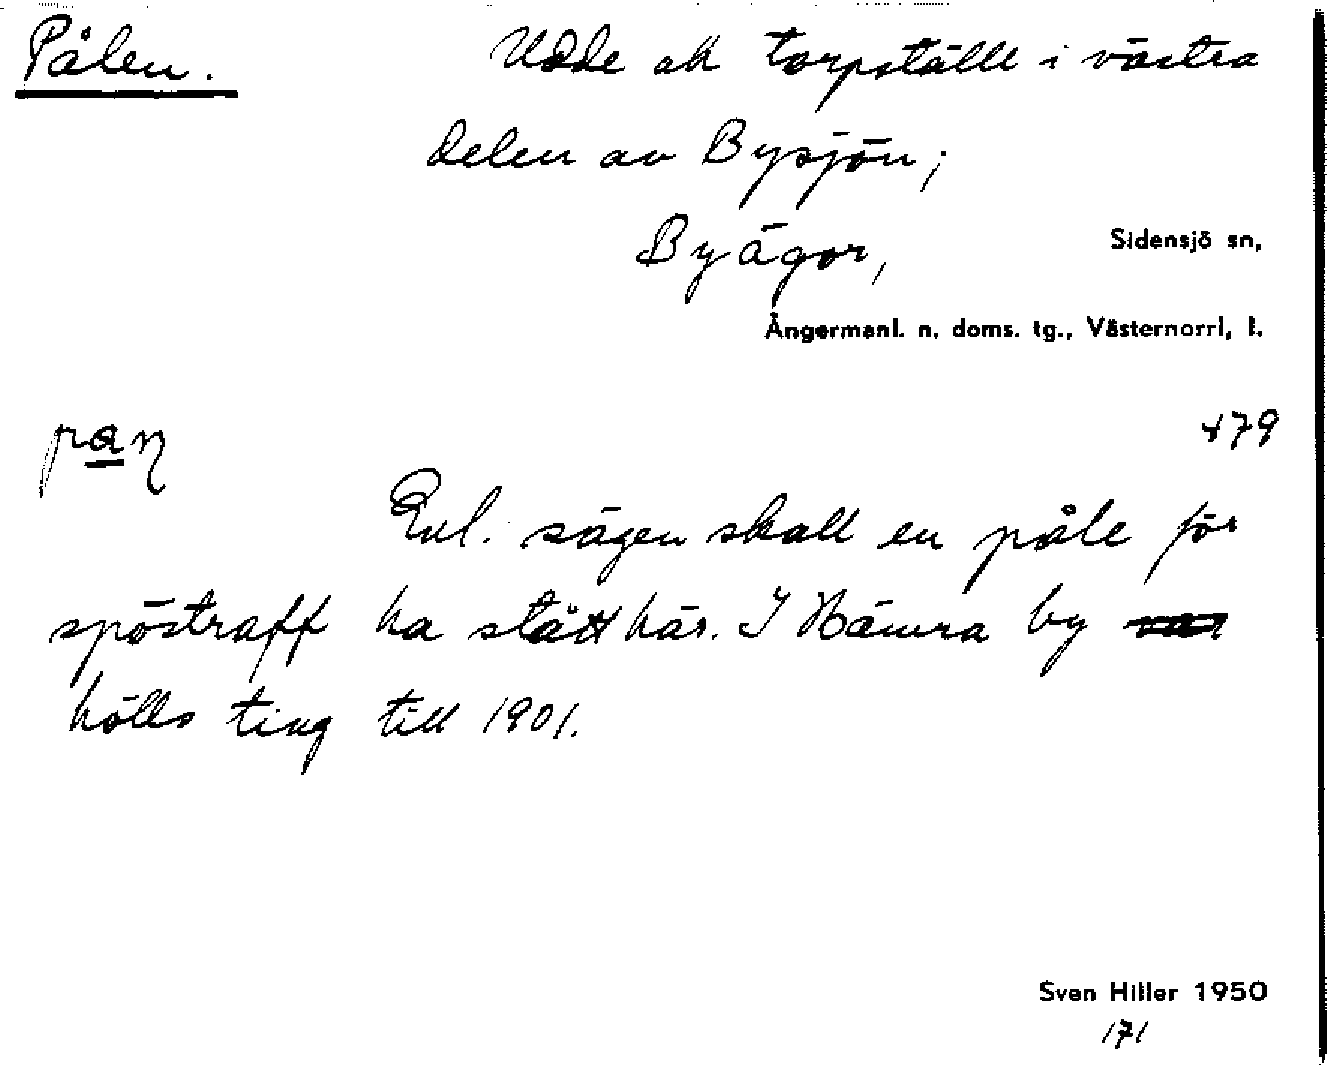 Pålen. Udde ok torpställe i västra
delen av Bysjön;
Byägor, Sidensjö sn,
Ångermanl. n. doms. tg., Västernorrl, l.
pan̥ +79
Enl. sägen skall en påle för
spöstraff ha stått här. I Nämra by
hölls ting till 1901.
Sven Hiller 1950
171